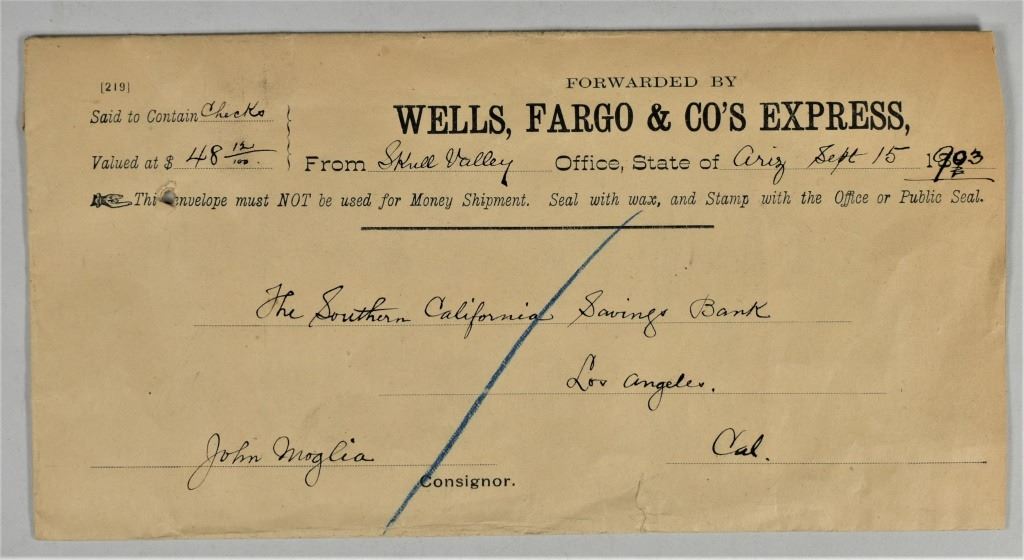 [219]
FORWARDED BY
Said to Contain Checks
WELLS, FARGO & CO'S EXPRESS,
Valued at $ 48 12/100.
From Skull Valley Office, State of Ariz Sept 15 1903
This envelope must NOT be used for Money Shipment. Seal with wax, and Stamp with the Office or Public Seal.
The Southern California Savings Bank
Los Angeles.
John Moglia
Cal.
Consignor.